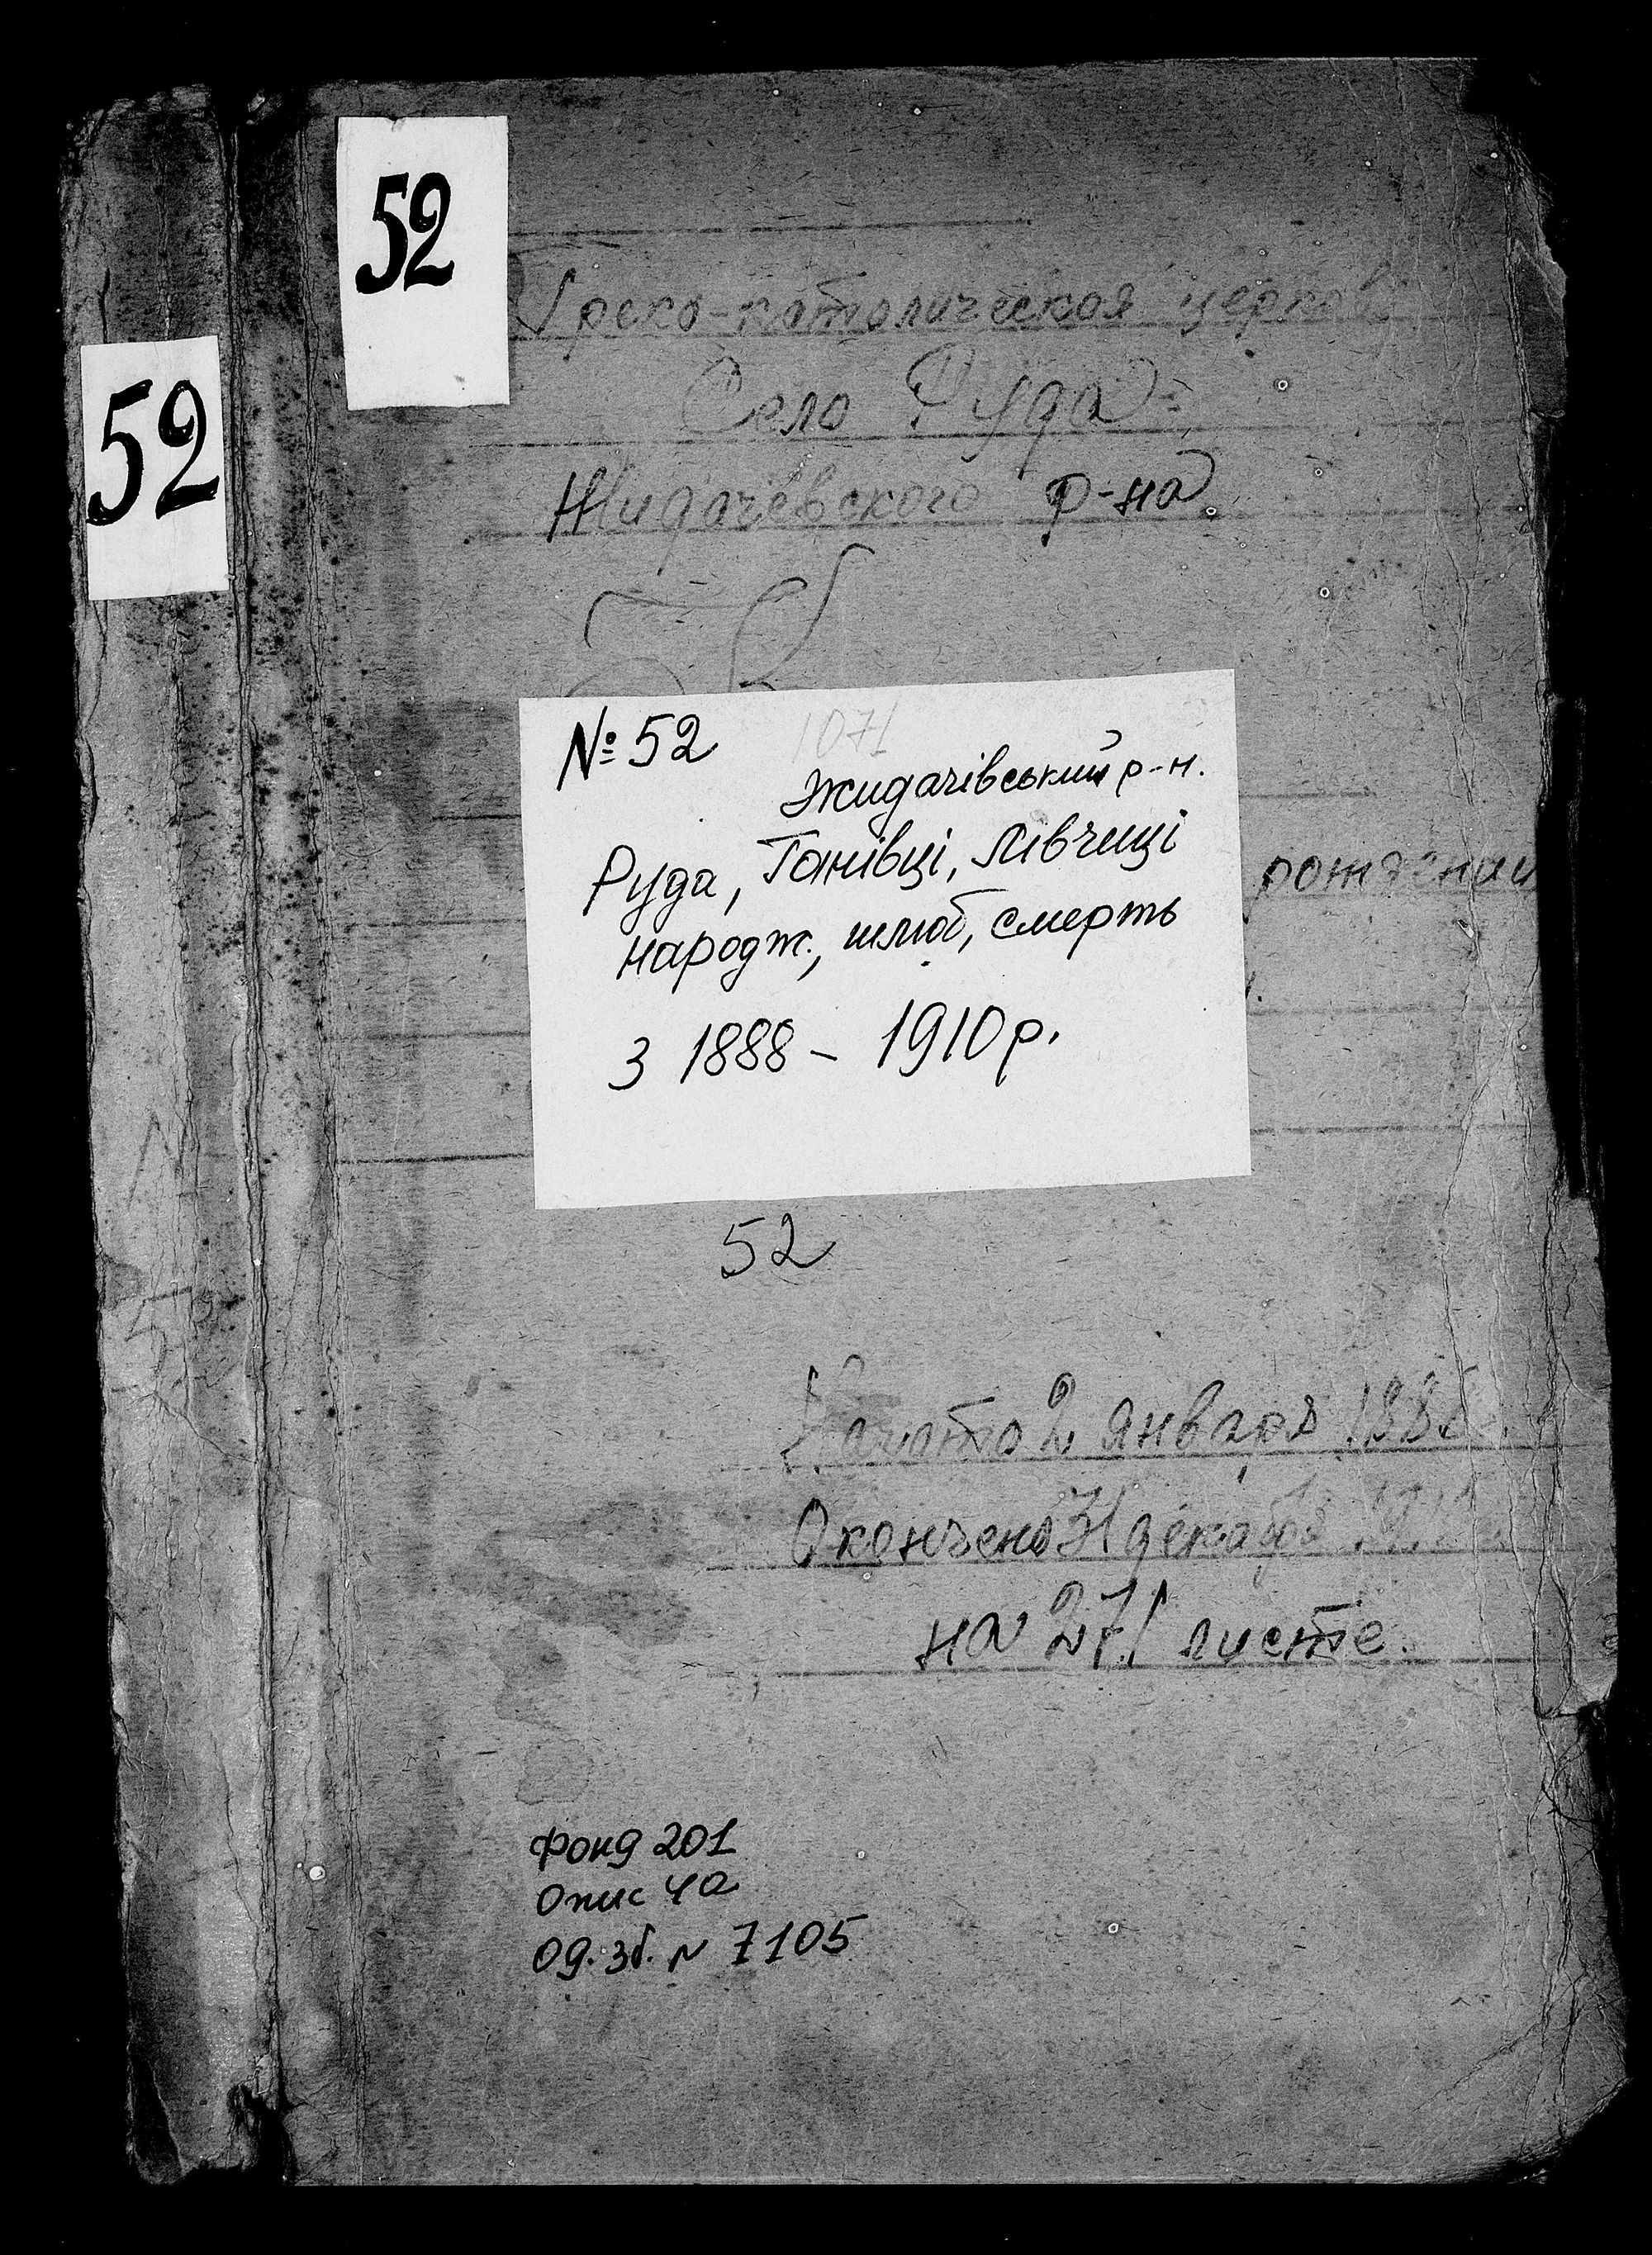 52
52
Греко-католическая церковь
Село Руда
Жидачевского р-на
№ 52 1071
Жидачівський р-н.
Руда, Ганівці, Лівчиці
народж., шлюб, смерть
з 1888 – 1910 р.
рождении
52
Начато 2 января 1888
Окончено 31 декабря
на 271 листе.
Фонд 201
Опис 4а
Од. зб. N 7105